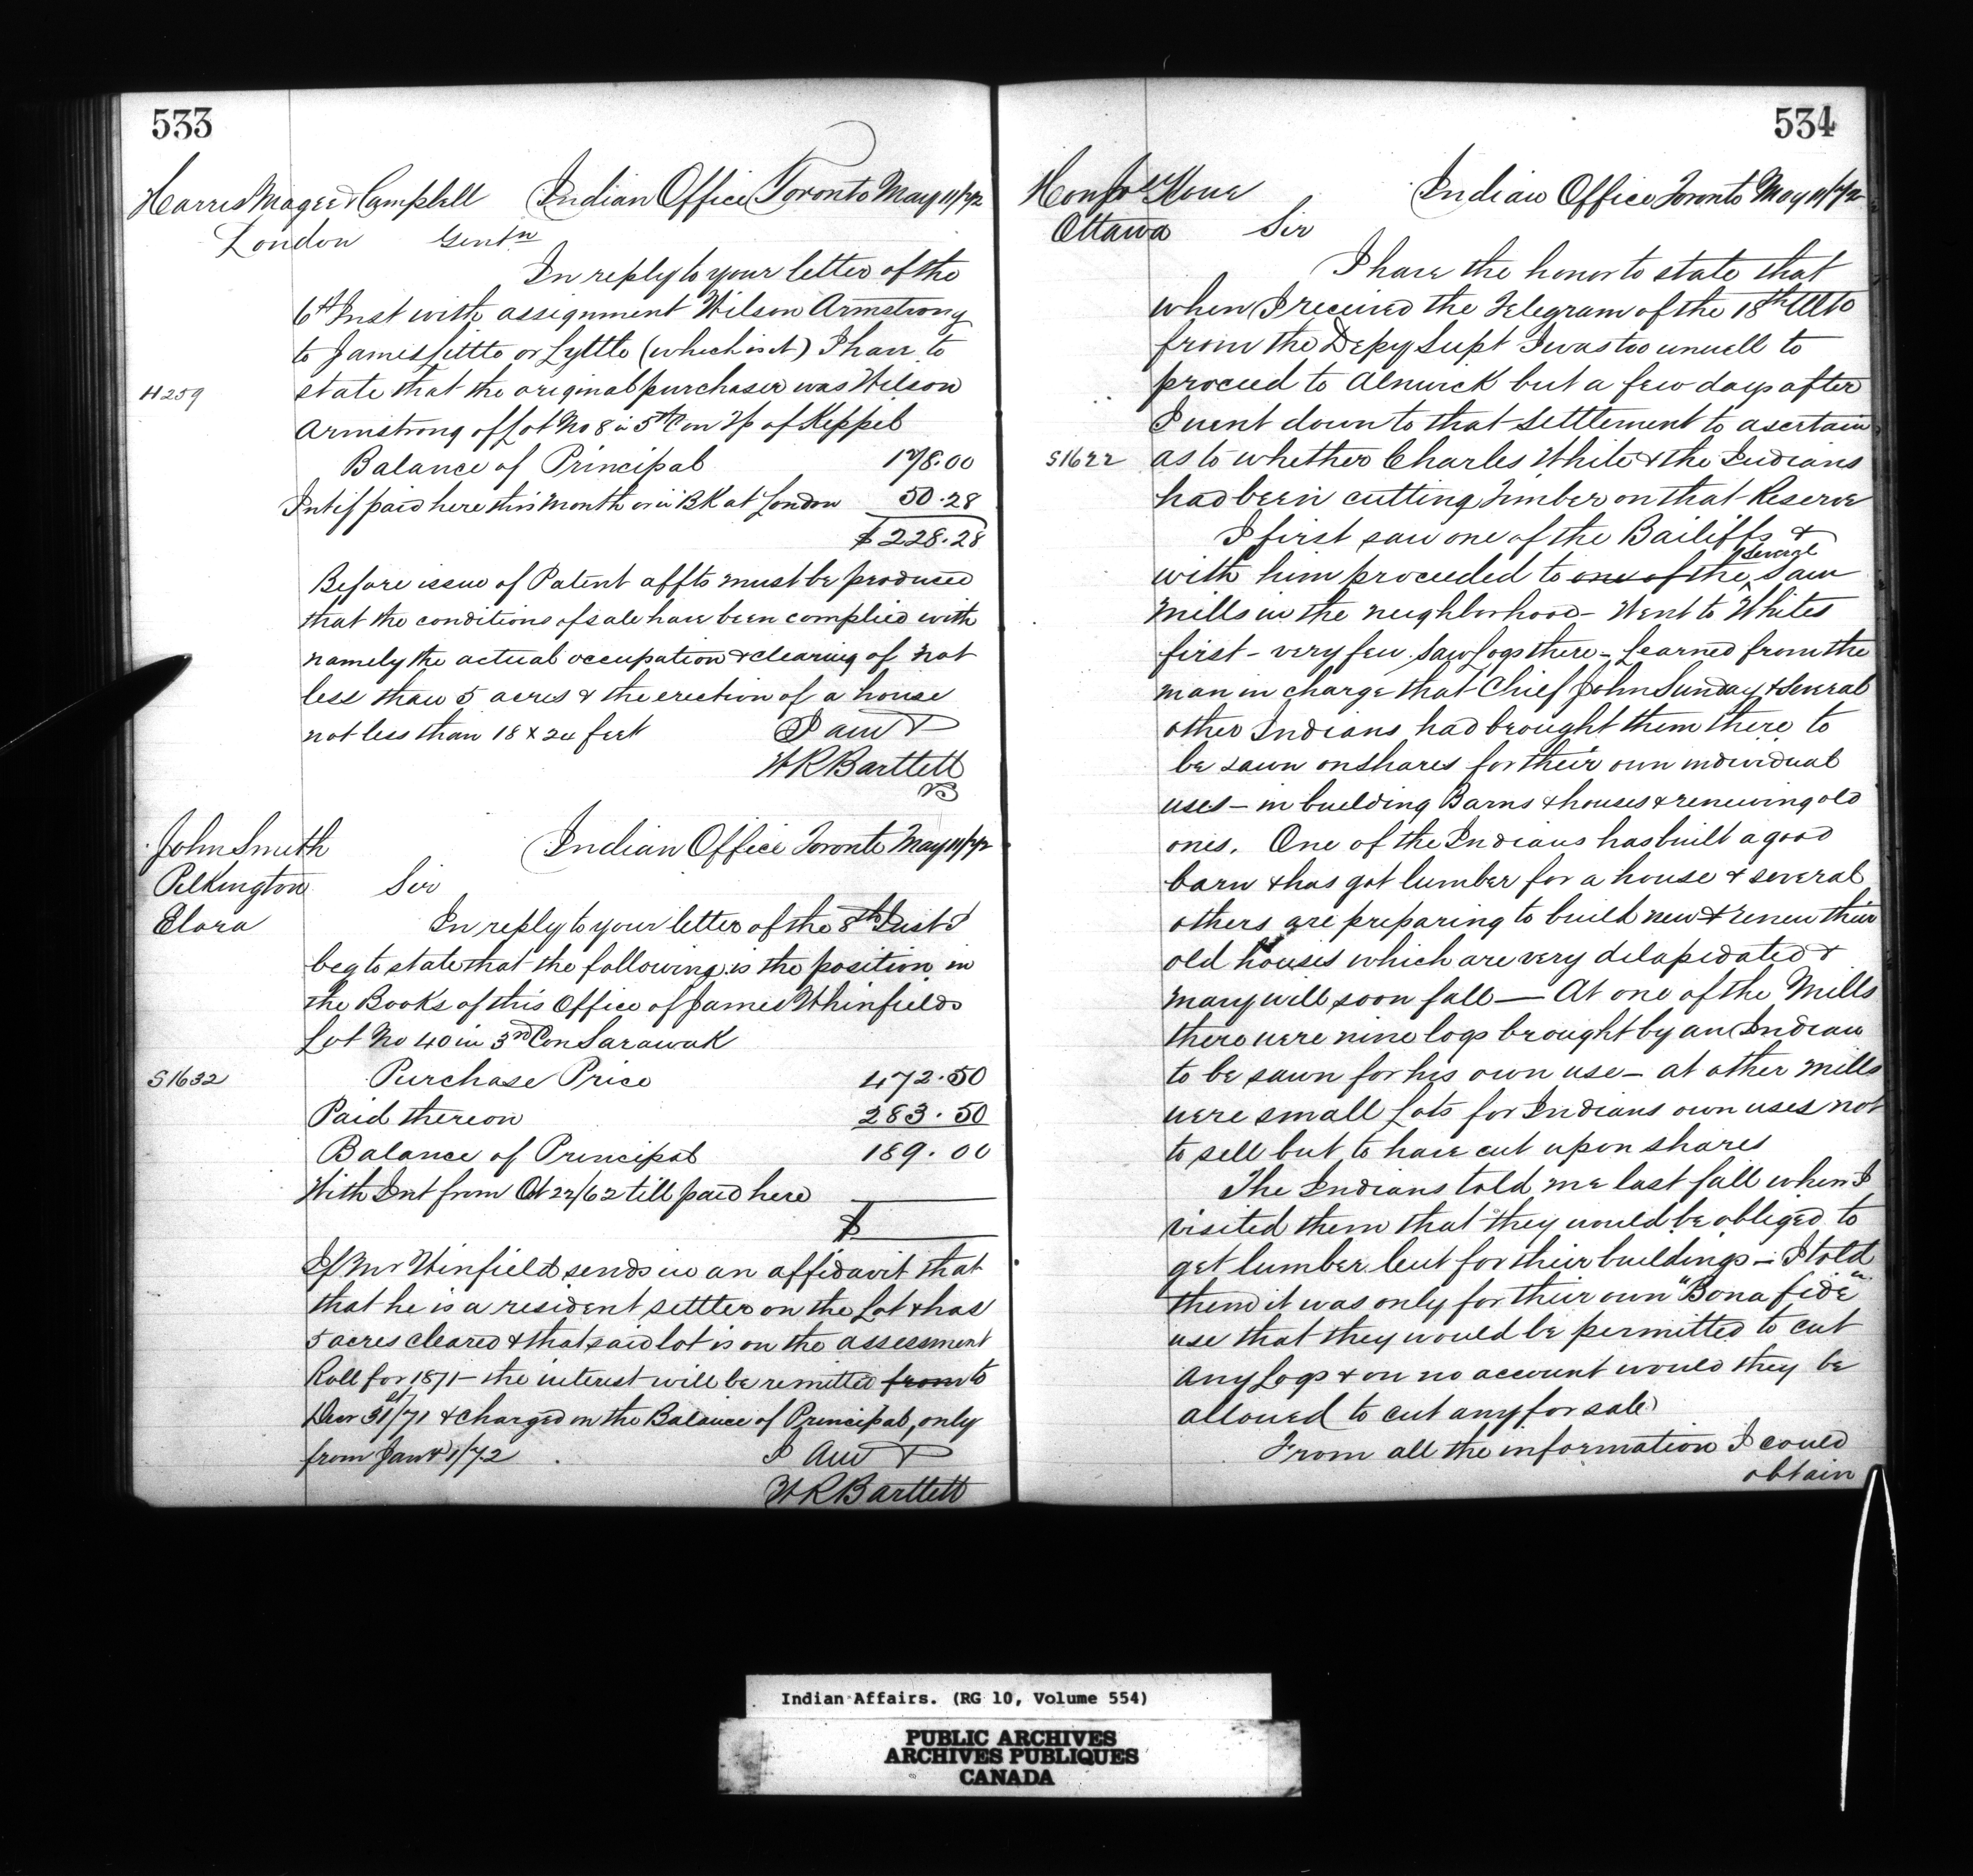 533
Harris Magee & Campbell Indian Office Toronto May 11/72
London Gentn
In reply to your letter of the
6th Inst with assignment Wilson Armstrong
to James Little or Lyttle (which is it) I have to
H259 state that the original purchaser was Wilson
Armstrong of Lot No 8 in 5th Con Tp of Keppel
Balance of Principal 178.00
Int if paid here this month or in BK at London 50.28
$228.28
Before issue of Patent affts must be produced
that the conditions of sale have been complied with
namely the actual occupation & clearing of not
less than 5 acres & the erection of a house
not less than 18 x 24 feet I am &
W R Bartlett
John Smith Indian Office Toronto May 11/72
Pilkington Sir
Elora In reply to your letter of the 8th Inst I
beg to state that the following is the position in
the Books of this Office of James Whinfields
Lot No 40 in 3rd Con Sarawak
S1632 Purchase Price 472.50
Paid thereon 283.50
Balance of Principal 189.00
With Int from Oct 22/62 till paid here
$
If Mr Winfield sends in an affidavit that
that he is a resident settler on the Lot & has
5 acres cleared & that said lot is on the assessment
Roll for 1871 - the interest will be remitted from to
Decr 31st/71 & charged on the Balance of Principal, only
from Jany 1/72 I Am &
W R Bartlett
534
Honl Jos Howe Indian Office Toronto May 11/72
Ottawa Sir
I have the honor to state that
when I received the Telegram of the 18th Ulto
from the Depy Supt I was too unwell to
proceed to Alnwick but a few days after
I went down to that settlement to ascertain
S1622 as to whether Charles White & the Indians
had been cutting Timber on that Reserve
I first saw one of the Bailiffs &
with him proceeded to one of the several Saw
mills in the neighborhood - Went to Whites
first - very few Saw Logs there - Learned from the
man in charge that Chief John Sunday & several
other Indians had brought them there to
be sawn on shares for their own individual
uses - in building Barns & houses & renewing old
ones. One of the Indians has built a good
barn & has got lumber for a house & several
others are preparing to build new & renew their
old houses which are very delapidated &
many will soon fall — At one of the Mills
there were nine logs brought by an Indian
to be sawn for his own use - at other mills
were small Lots for Indians own uses not
to sell but to have cut upon shares
The Indians told me last fall when I
visited them that they would be obliged to
get lumber cut for their buildings - I told
them it was only for their own "Bona fide"
use that they would be permitted to cut
any Logs & on no account would they be
allowed to cut any for sale
From all the information I could
obtain
Indian Affairs. (RG 10, Volume 554)
PUBLIC ARCHIVES
ARCHIVES PUBLIQUES
CANADA